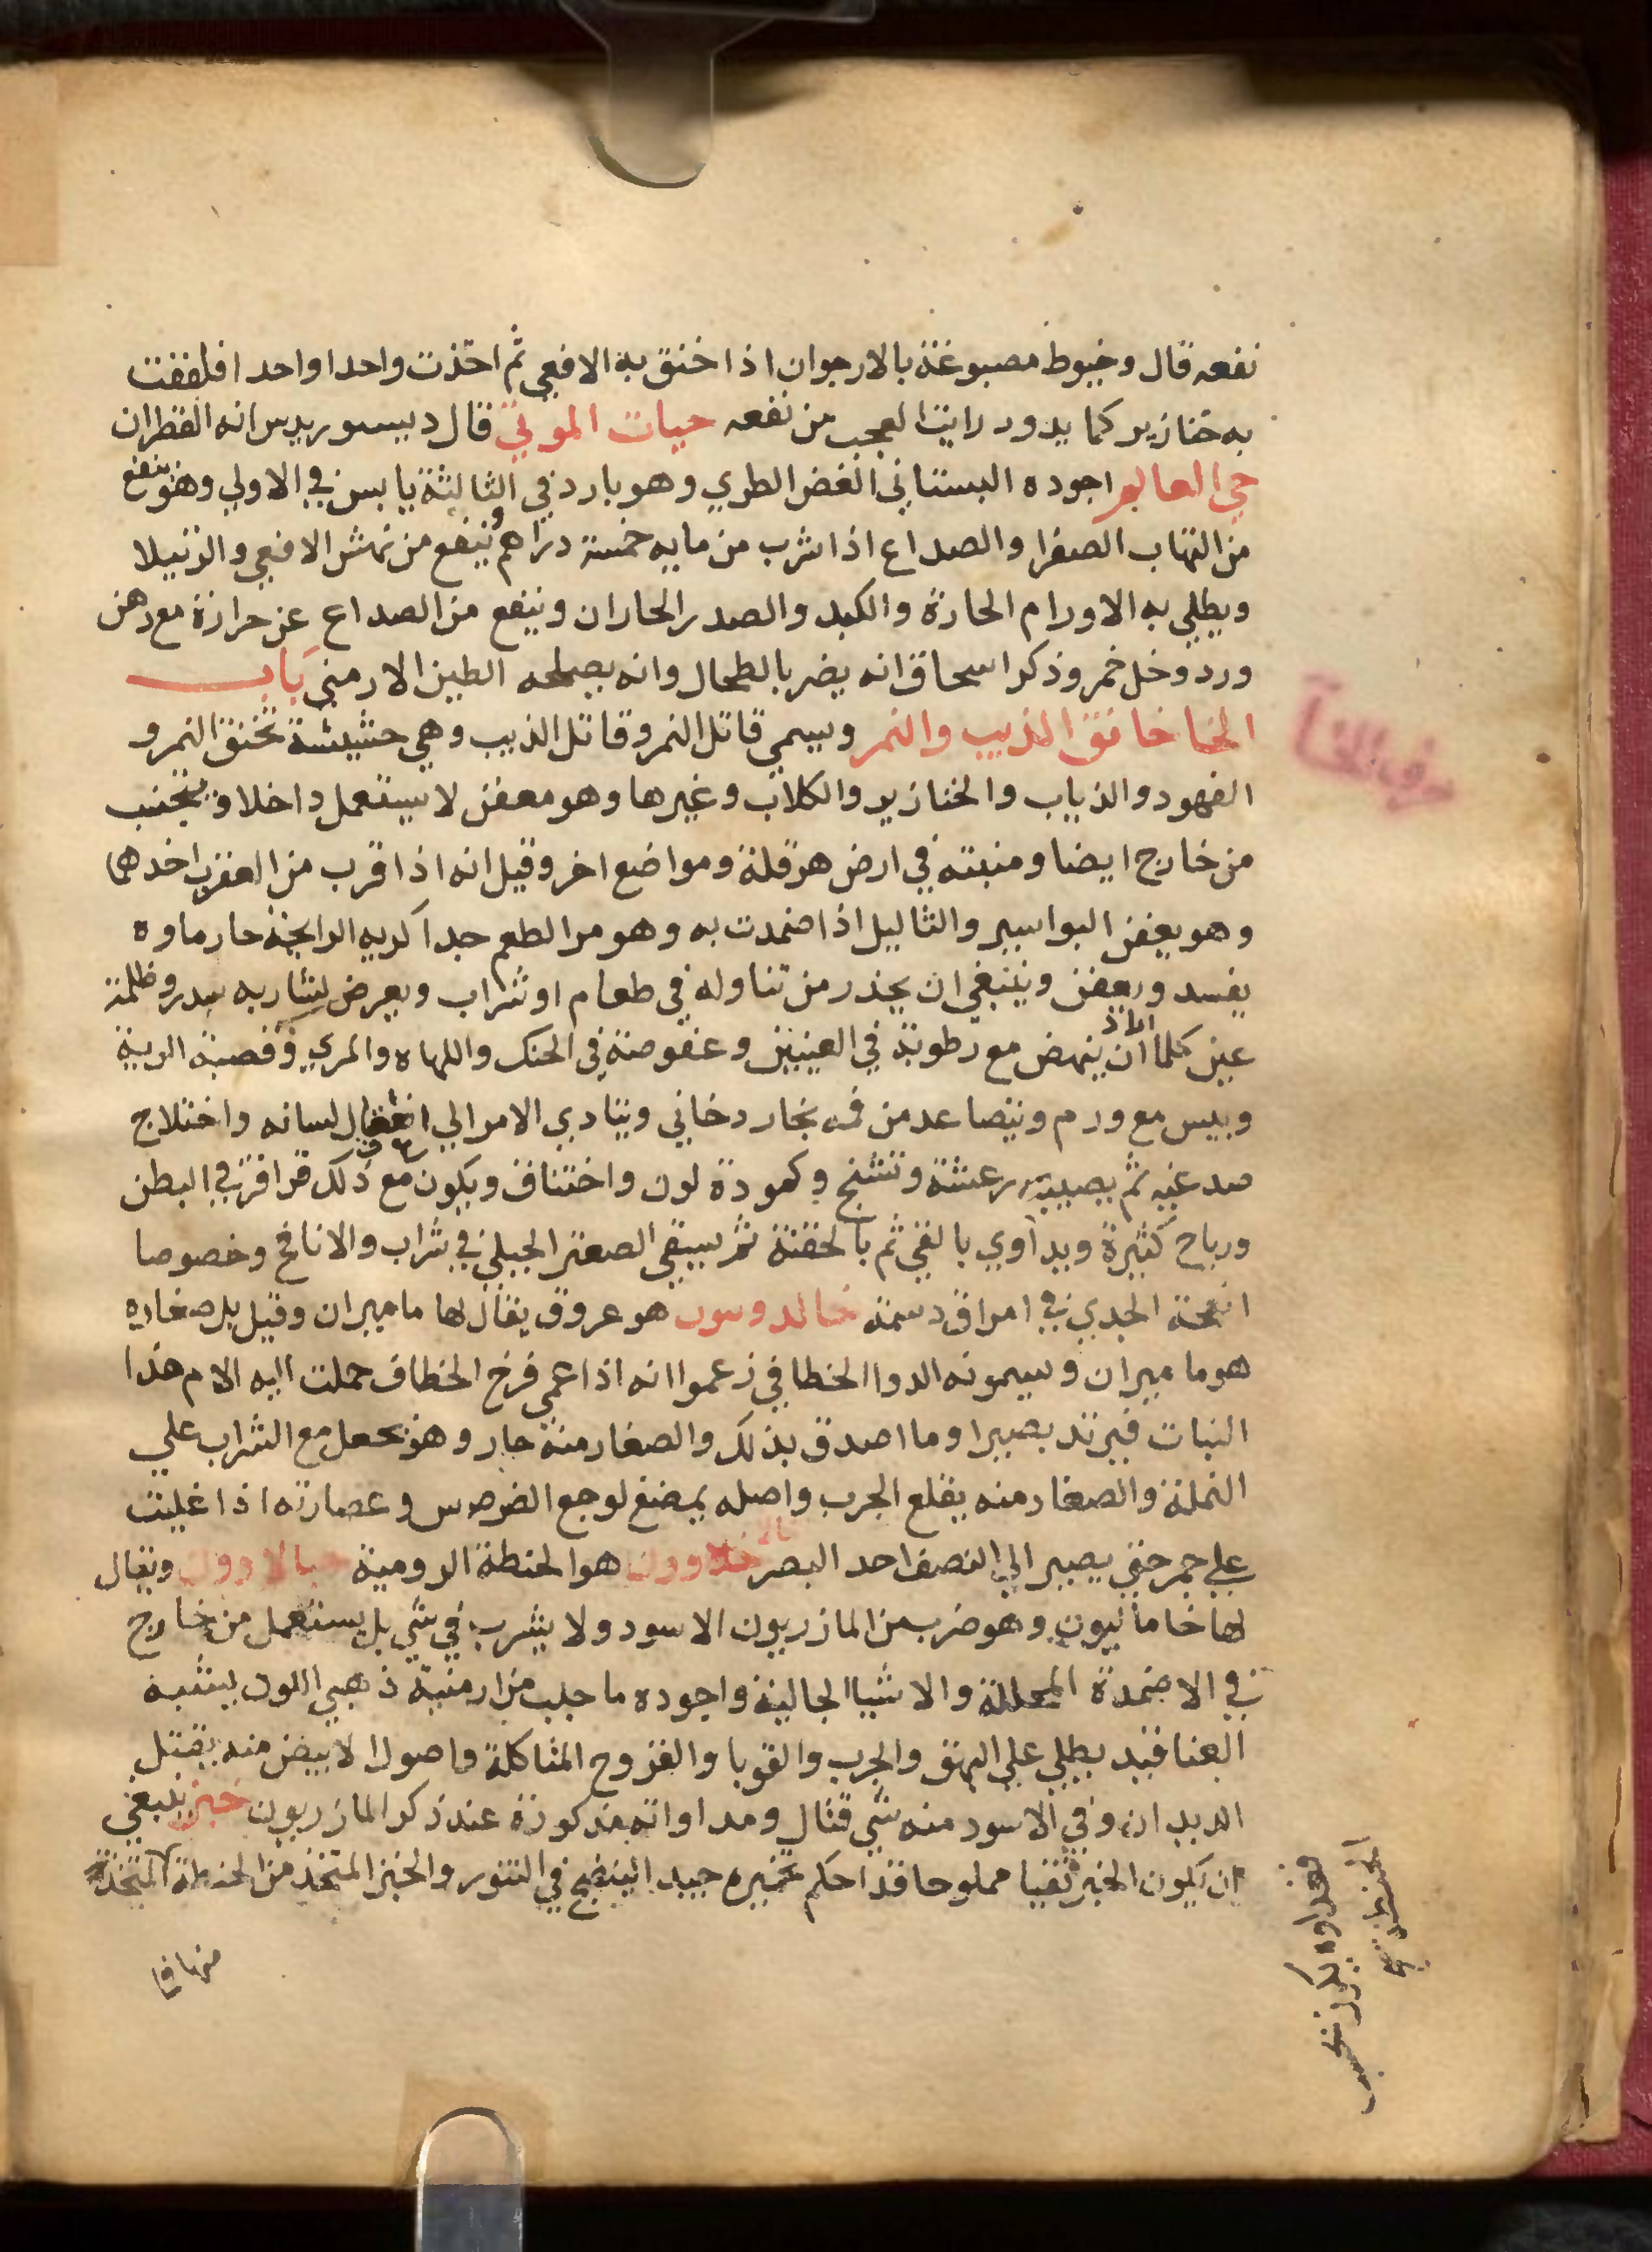 نفعه قال وخيوط مصبوغة بالارجوان اذا خنق به الافعي ثم اخذت واحدا واحدا فلففت
به خنازير كما يدور رايت العجب من نفعه حيات الموتي قال ديسوريدس انه القطران
حي العالم اجوده البستاني الغض الطري وهو بارد في الثالثة يابس في الاولي وهو ينفع
من التهاب الصفرا والصداع اذا شرب من مايه خمسة دراهم وينفع من نهش الافعي والرتيلا
ويطلي به الاورام الحارة والكبد والصدر الحاران وينفع من الصداع عن حرارة مع دهن
ورد وخل خمر وذكر اسحاق انه يضر بالطحال وانه يصلحه الطين الارمني باب
الخا خانق الذيب والنمر ويسمي قاتل النمر وقاتل الذيب وهي حشيشة تخنق النمر و
الفهود والذياب والخنازير والكلاب وغيرها وهو معفن لا يستعمل داخلا ويتجنب
من خارج ايضا ومنبته في ارض هرقلة ومواضع اخر وقيل انه اذا قرب من العقرب اخدها
وهو يعفن البواسير والثاليل اذا ضمدت به وهو مر الطعم جدا كريه الرايحة حار ماوه
يفسد ويعفن وينبغي ان يحذر من تناوله في طعام او شراب ويعرض لشاربه سدر وظلمة
عين كلما اراد ان ينهض مع رطوبة في العينين وعفوصة في الحنك واللهاه والمري وقصبة الرية
ويبس مع ورم ويتصاعد من فمه بخار دخاني ويتادي الامر الي اعتقال لسانه واختلاج
صدغيه ثم يصيبه رعشة وتشنج وكمودة لون واختناق ويكون مع ذلك قراقر في البطن
ورياح كثيرة ويداوي بالقي ثم بالحقنة ثم يسقي الصعتر الجبلي في شراب والانافح وخصوصا
انفحة الجدي في امراق دسمة خالدوسون هو عروق يقال لها ماميران وقيل بل صغاره
هو ماميران ويسمونه الدوا الخطافي زعموا انه اذا عمي فرخ الخطاف حملت اليه الام هذا
النبات فيرتد بصيرا وما اصدق بذلك والصغار منه حار وهو يجعل مع الشراب علي
النملة والصغار منه يقلع الجرب واصله يمضغ لوجع الضرس وعصارته اذا غليت
علي جمر حتي يصير الي النصف احد البصر هو الحنطة الرومية ويقال
لها خامانيون وهو ضرب من المازريون الاسود ولا يشرب في شي بل يستعمل من خارج
في الاضمدة المحللة والاشيا الجالية واجوده ما جلب من ارمنية ذهبي اللون ليشبه
العناقيد يطلي علي البهق والجرب والقوبا والقروح المتاكلة واصول الابيض منه يقتل
الديدان وفي الاسود منه شي قتال ومداواته مذكورة عند ذكر المازريون خبز ينبغي
ان يكون الخبز نقيا مملوحا قد احكم تخميره جيد النضج في التنور والخبز المتخذ من الحنطة المتخذة
منها في
حرف الخا